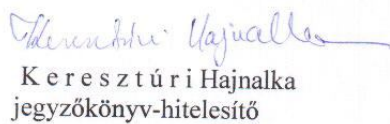 Keresztúri Hajnalka
K e r e s z t ú r i Hajnalka
jegyzőkönyv-hitelesítő